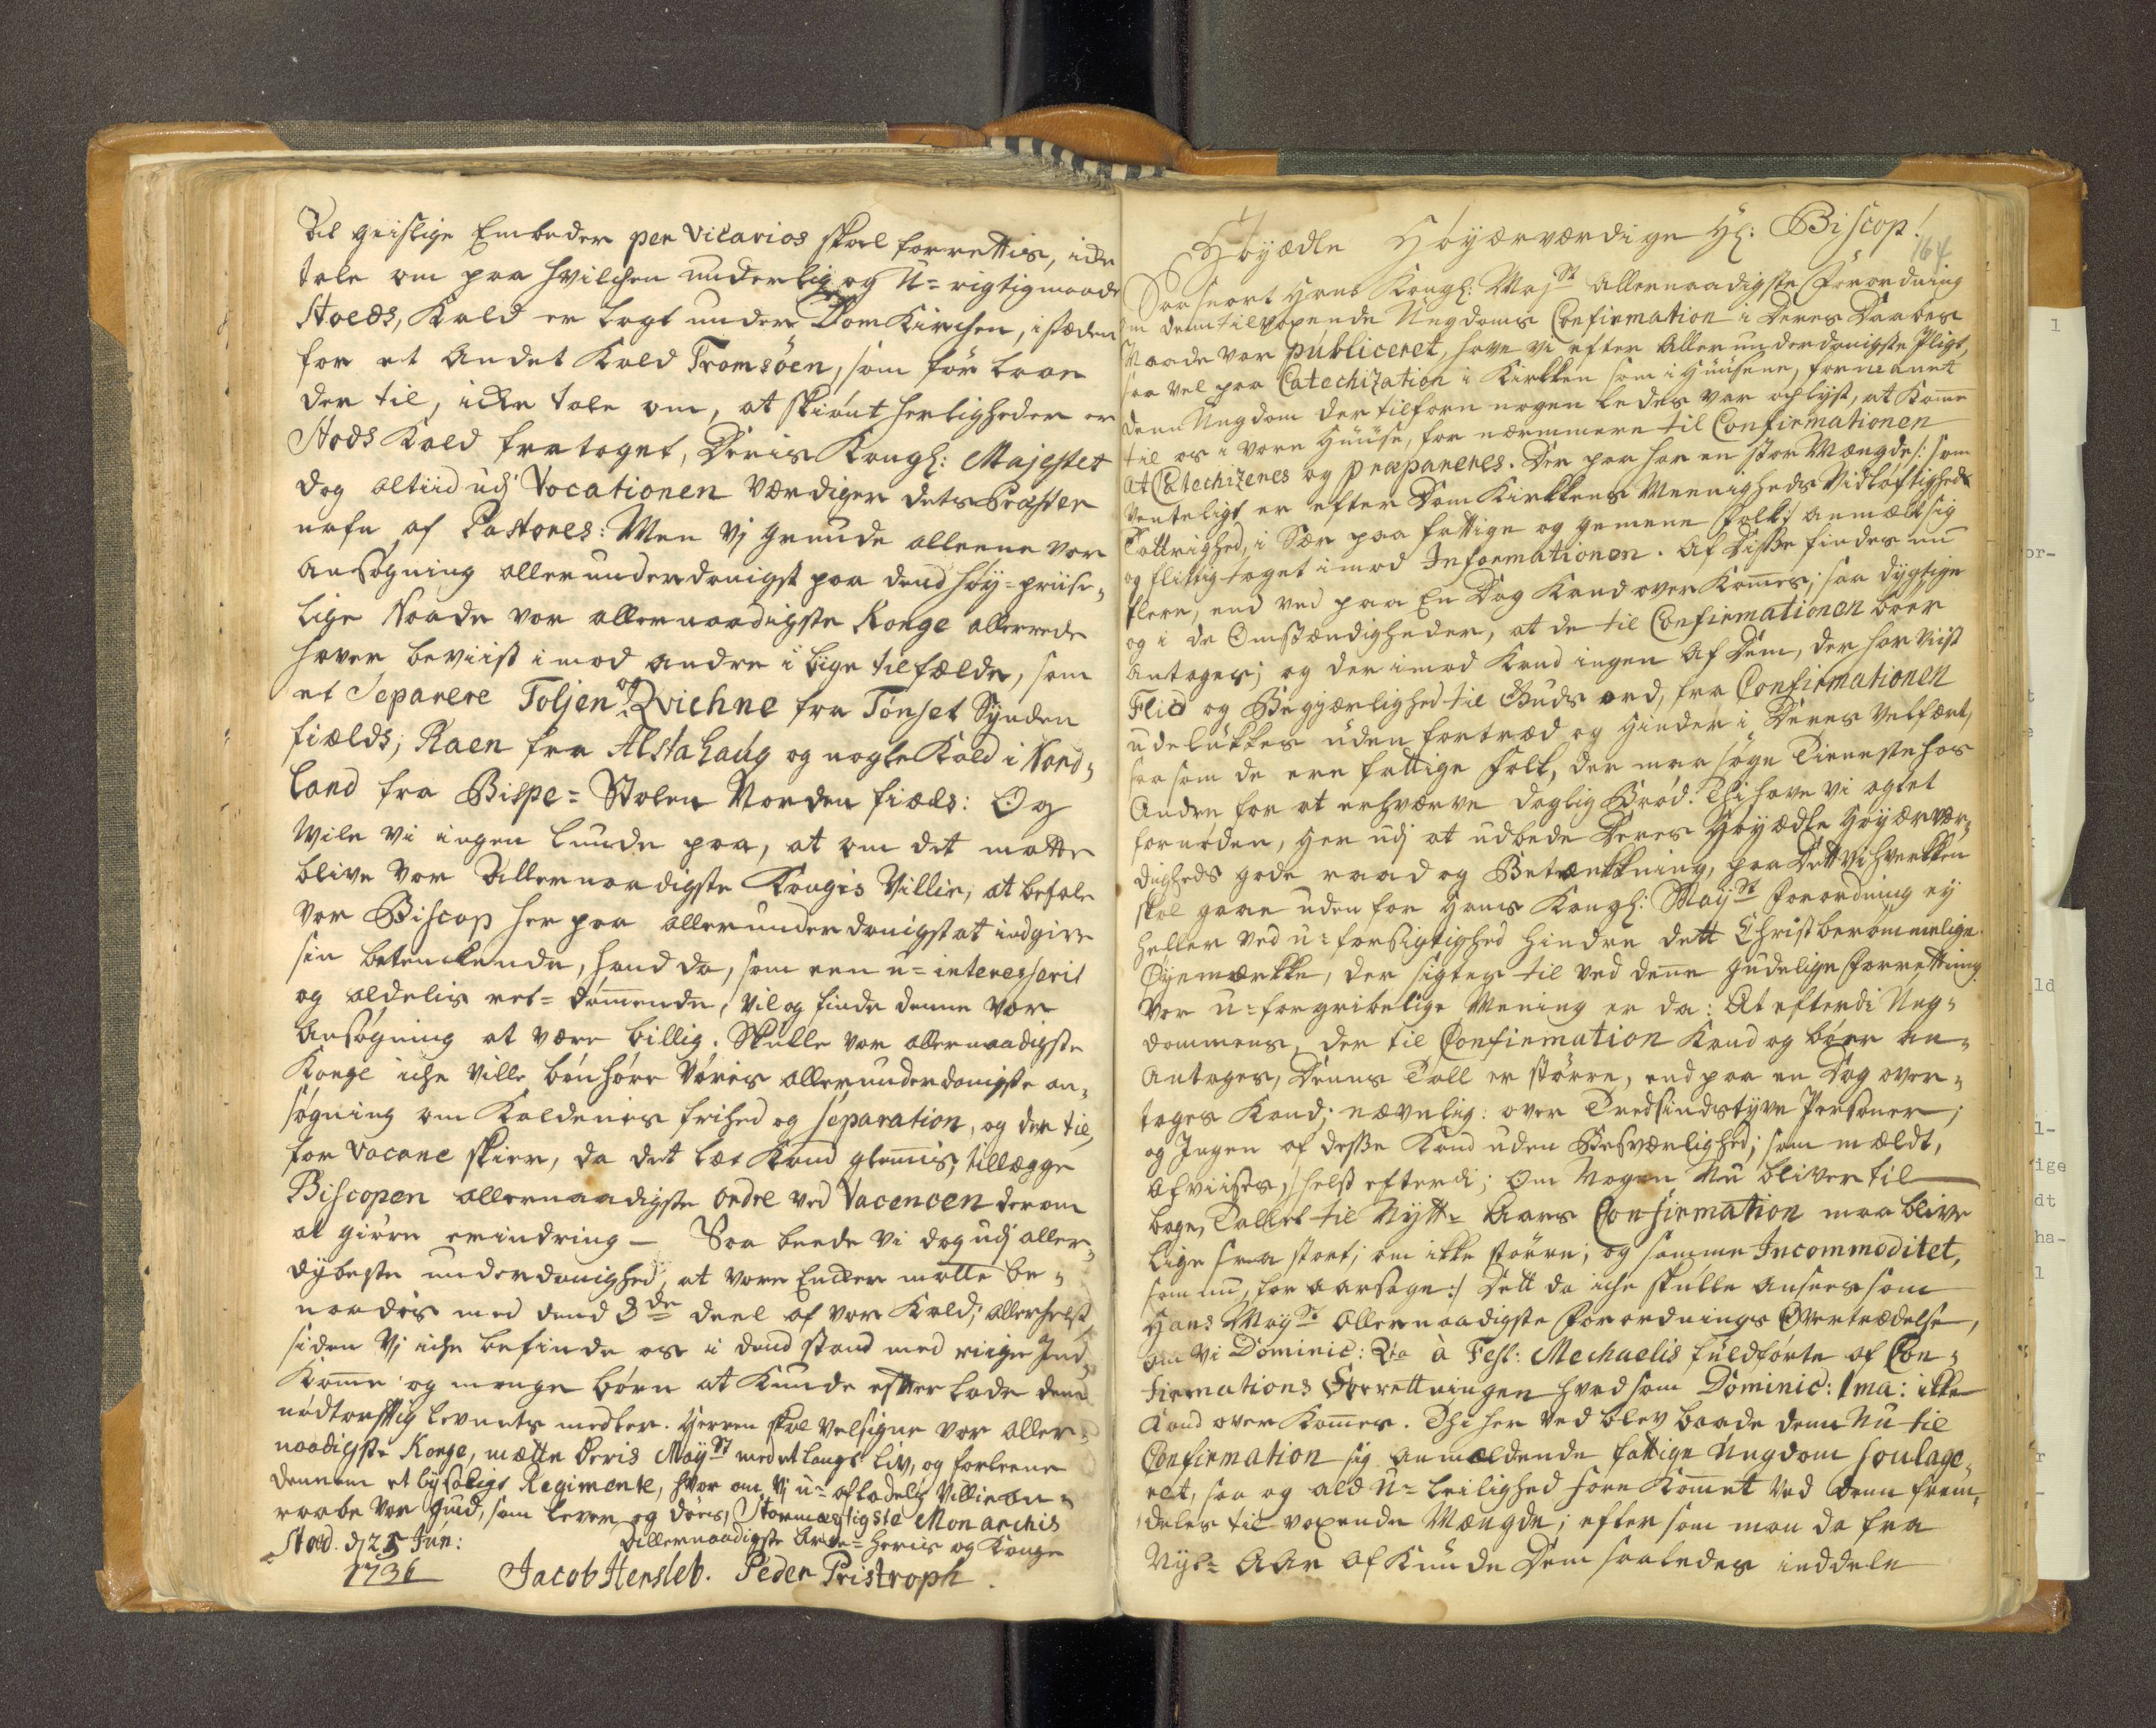 Til geistlige Embeder per vicarios skal forrettis, icke
tale om paa hvilchen underlig og U-rigtig maade
Stoeds, Kald er lagt under Dom Kirchen, i stæden
for et Andet Kald Tromsöen, som för laae
der til, icke tale om, at skiönt herligheden er
Stods Kald fra taget, Deris Kongl: Majestet
dog altiid udj Vocationen Værdiger dets Præster
nafn af Pastores: Men Vj grunde alleene vor
Ansögning allerunderdanigst paa dend höy-priise-
lige Naade vor allernaadigste Konge allerrede
haver beviist imod andre i lige tilfælde, som
et Separere Toljen og Qviehne fra Tönset Synden
fields; Raen fra Alstahaug og nogle Kald i Nord-
land fra Bispe-Stolen Norden fields: Og
Wile vi ingen lunde paa, at om det matte
blive Vor Allernaadigste Kongis Villie, at befale
Vor Biscop her paa allerunderdanigst at indgive
sin betenkende, hand da, som een u-interesserit
og aldelis ret-dömmende, vil og finde denne vor
Ansögning at være billig. Skulle vor allernaadigste
Konge iche Ville bönhöre Voris allerunderdanigste an-
sögning om Kaldenes frihed og separation, og der til,
for Vacance skier, da det let Kand glemis, tillægge
Biscopen allernaadigste ordre ved Vacencen derom
at giöre erindring - Saa beede Vi dog udj aller-
dybeste underdanighed, at vore Encker motte be-
naades med dend 3de deel af vor Kald; allerhelst
siden Vj iche befinde os i dend stand med riige Ind-
Komme og mange börn at Kunde efterlade dem
nödtorftig levnets medler. Herren skal velsigne vor aller-
naadigste Konge, mætte Deris Mayst med et langt liv, og forleene
dennem et lyksaligt Regimente, hvor om Vj u-afladelig Villie an-
raabe Vor Gud, som lever og döer, Stormægtigste Monarchis
Stod. dj 25 Jun:
Allernaadigste Arve-Herris og Konge
1736
Jacob Hersleb. Peder Pristroph.
164
Höyædle Höyærværdige Hl: Biscop!
Saa snart Hans Kongl: Majst Allernaadigste Forordning
om den tilvoxende Ungdoms Confirmation i Deres Daabes
Naade var publiceret, have vi efter Allerunderdanigste Pligt,
saa vel paa Catechization i Kirkken som i Huusene, formanet
denn Ungdom der tilforn nogen ledes var oplyst, at Komme
til os i vore Huuse, for nærmere til Confirmationen
at Catechizeres og præpareres. Der paa har en stor Mængde /: som
Venteligt er efter Dom Kirkkens Meenigheds Vidlöftigheds
Taltrighed, i Sær paa fattige og gemene Folk :/ anmældt sig
og flittig taget imod Informationen. Af Disse findes nu
flere, end ved paa En Dag Kand over Kommes; saa dygtige
og i de Omstændigheder, at de til Confirmationen bör
Antages; og der imod Kand ingen af Dem, der har viist
Flid og Begyærlighed til Guds ord, fra Confirmationen
udelukkes uden fortræd og hinder i Deres Velfært,
saa som de ere fattige Folk, der maa söge Tieneste hos
Andre for at erhværve daglig Bröd: Thi have vi agtet
fornöden, her udj at udbede Deres Höyædle Höyærvær-
digheds gode raad og Betænkkning, paa Det Vi hverkken
skal gaae uden for Hans Kongl: Mayst Forordning ey
heller ved u-forsigtighed hindre dett Christberömmelige
Öyemerkke, der sigtes til ved denne gudelige Forrettning.
Vor u-forgribelige Mening er da: At efterdi Ung-
dommens, der til Confirmation Kand og böer an-
Antages, Denns Tall er större, end paa en Dag over-
tages Kand; nævnlig: over Tredsindstyve Personer;
og Ingen af desse Kand uden Besværlighed; som mældt,
Afviises, /: helst efterdi; Om Nogen Nu bliver til
bage, Tallet til Nytt-Aars Confirmation maa blive
lige saa stort; om ikke större; og samme Incommoditet,
som nu, for aarsage :/ Dett da iche skulle ansees som
Hans Mayst Allernaadigste Forordnings Overtrædelse,
om Vi Dominic: 2da à Fest: Mechaelis fuldförte af Con-
firmations Forrettningen hvad som Dominic: 1ma: ikke
Kand over Kommes. Thi her ved blev baade denn Nu til
Confirmation sig anmældende fattige Ungdom soulage-
ret, saa og ald U-leilighed fore Kommet ved denn frem-
deles til voxende Mængde; efter som man da fra
Nyt-Aar af Kunde Dem saaledes inddele